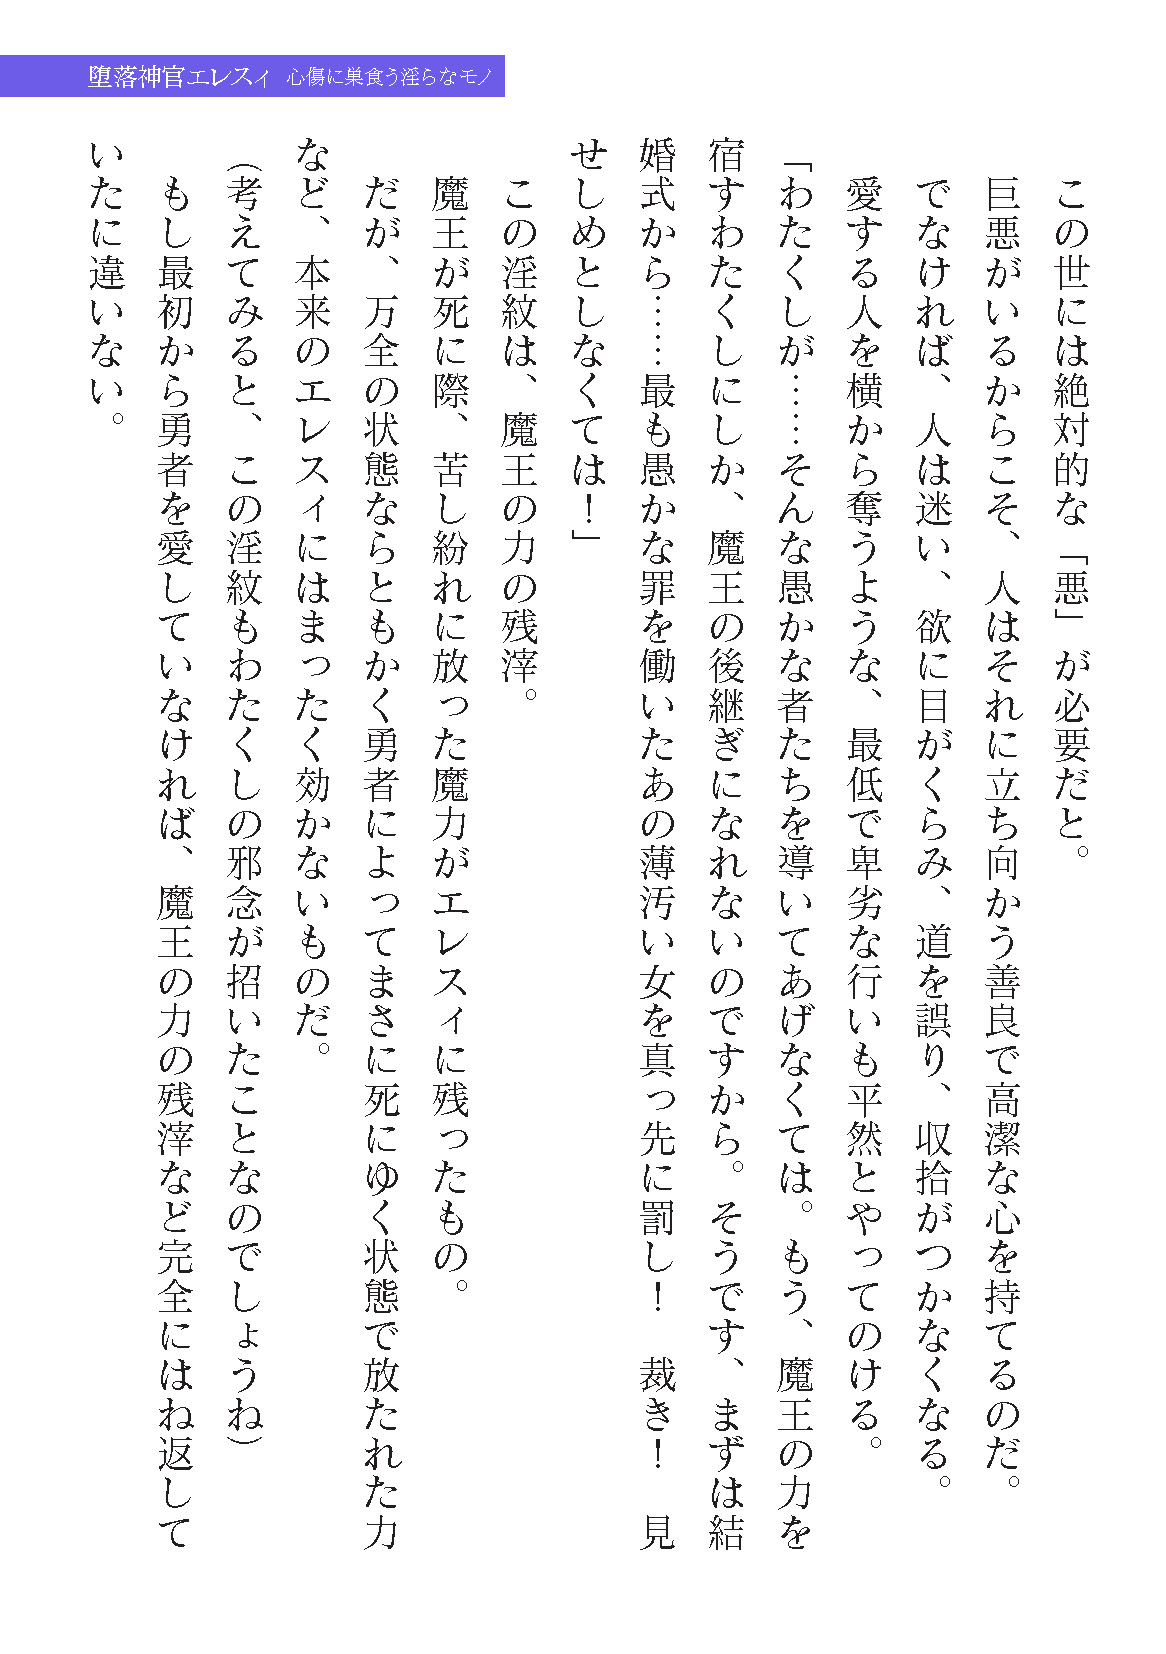 堕落神官エレスィ 心傷に巣食う淫らなモノ
この世には絶対的な「悪」が必要だと。
巨悪がいるからこそ、人はそれに立ち向かう善良で高潔な心を持てるのだ。
でなければ、人は迷い、欲に目がくらみ、道を誤り、収拾がつかなくなる。
愛する人を横から奪うような、最低で卑劣な行いも平然とやってのける。
「わたくしが……そんな愚かな者たちを導いてあげなくては。もう、魔王の力を
宿すわたくしにしか、魔王の後継ぎになれないのですから。そうです、まずは結
婚式から……最も愚かな罪を働いたあの薄汚い女を真っ先に罰し！　裁き！　見
せしめとしなくては！」
この淫紋は、魔王の力の残滓。
魔王が死に際、苦し紛れに放った魔力がエレスィに残ったもの。
だが、万全の状態ならともかく勇者によってまさに死にゆく状態で放たれた力
など、本来のエレスィにはまったく効かないものだ。
（考えてみると、この淫紋もわたくしの邪念が招いたことなのでしょうね）
もし最初から勇者を愛していなければ、魔王の力の残滓など完全にはね返して
いたに違いない。